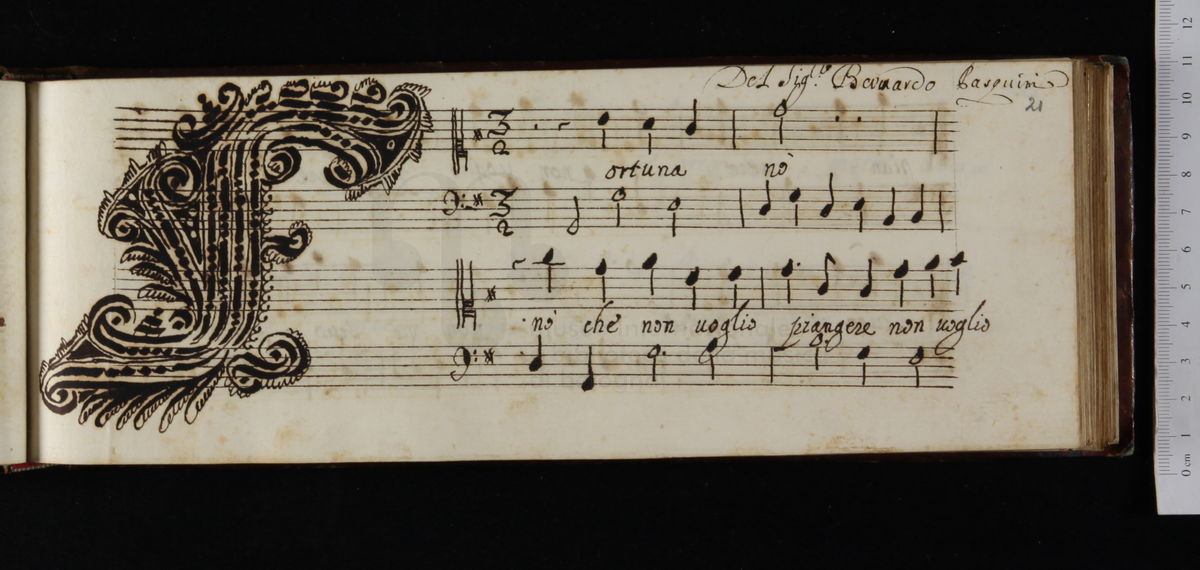 Del Sig.re Bernardo Pasquini
21
Fortuna nò
nò che non uoglio piangere non uoglio
0 cm 1 2 3 4 5 6 7 8 9 10 11 12